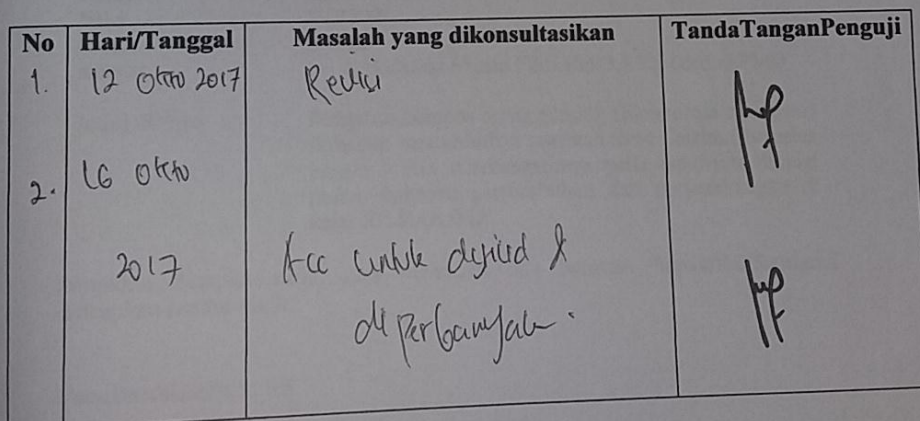 No Hari/Tanggal Masalah yang dikonsultasikan TandaTanganPenguji
1. 12 Okto 2017 Revisi
2. 16 Okto
2017 Acc untuk dijilid &
diperbanyak.